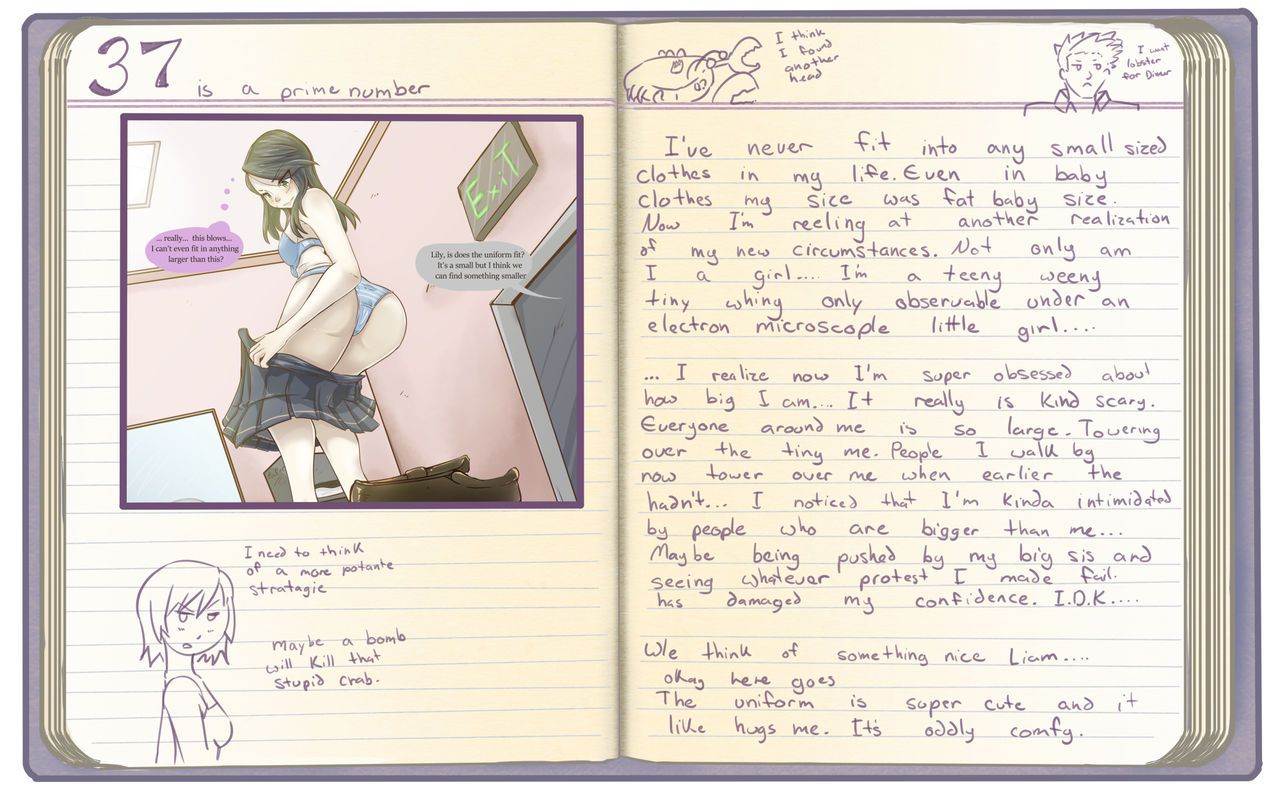 37
is a prime number
... really... this blows...
I can't even fit in anything
larger than this?
ExiT
Lily, is does the uniform fit?
It's a small but I think we
can find something smaller
I need to think
of a more potante
stratagie
maybe a bomb
will kill that
stupid crab.
I think
I found
another
head
I want
lobster
for Diner
I've never fit into any small sized
clothes in my life. Even in baby
clothes my size was fat baby size.
Now I'm reeling at another realization
of my new circumstances. Not only am
I a girl.... I'm a teeny weeny
tiny whing only observable under an
electron microscople little girl....
... I realize now I'm super obsessed about
how big I am... It really is Kind scary.
Everyone around me is so large. Towering
over the tiny me. People I walk by
now tower over me when earlier the
hadn't... I noticed that I'm Kinda intimidated
by people who are bigger than me...
Maybe being pushed by my big sis and
seeing whatever protest I made fail.
has damaged my confidence. I.D.K....
We think of something nice Liam....
okay here goes
The uniform is super cute and it
like hugs me. It's oddly comfy.